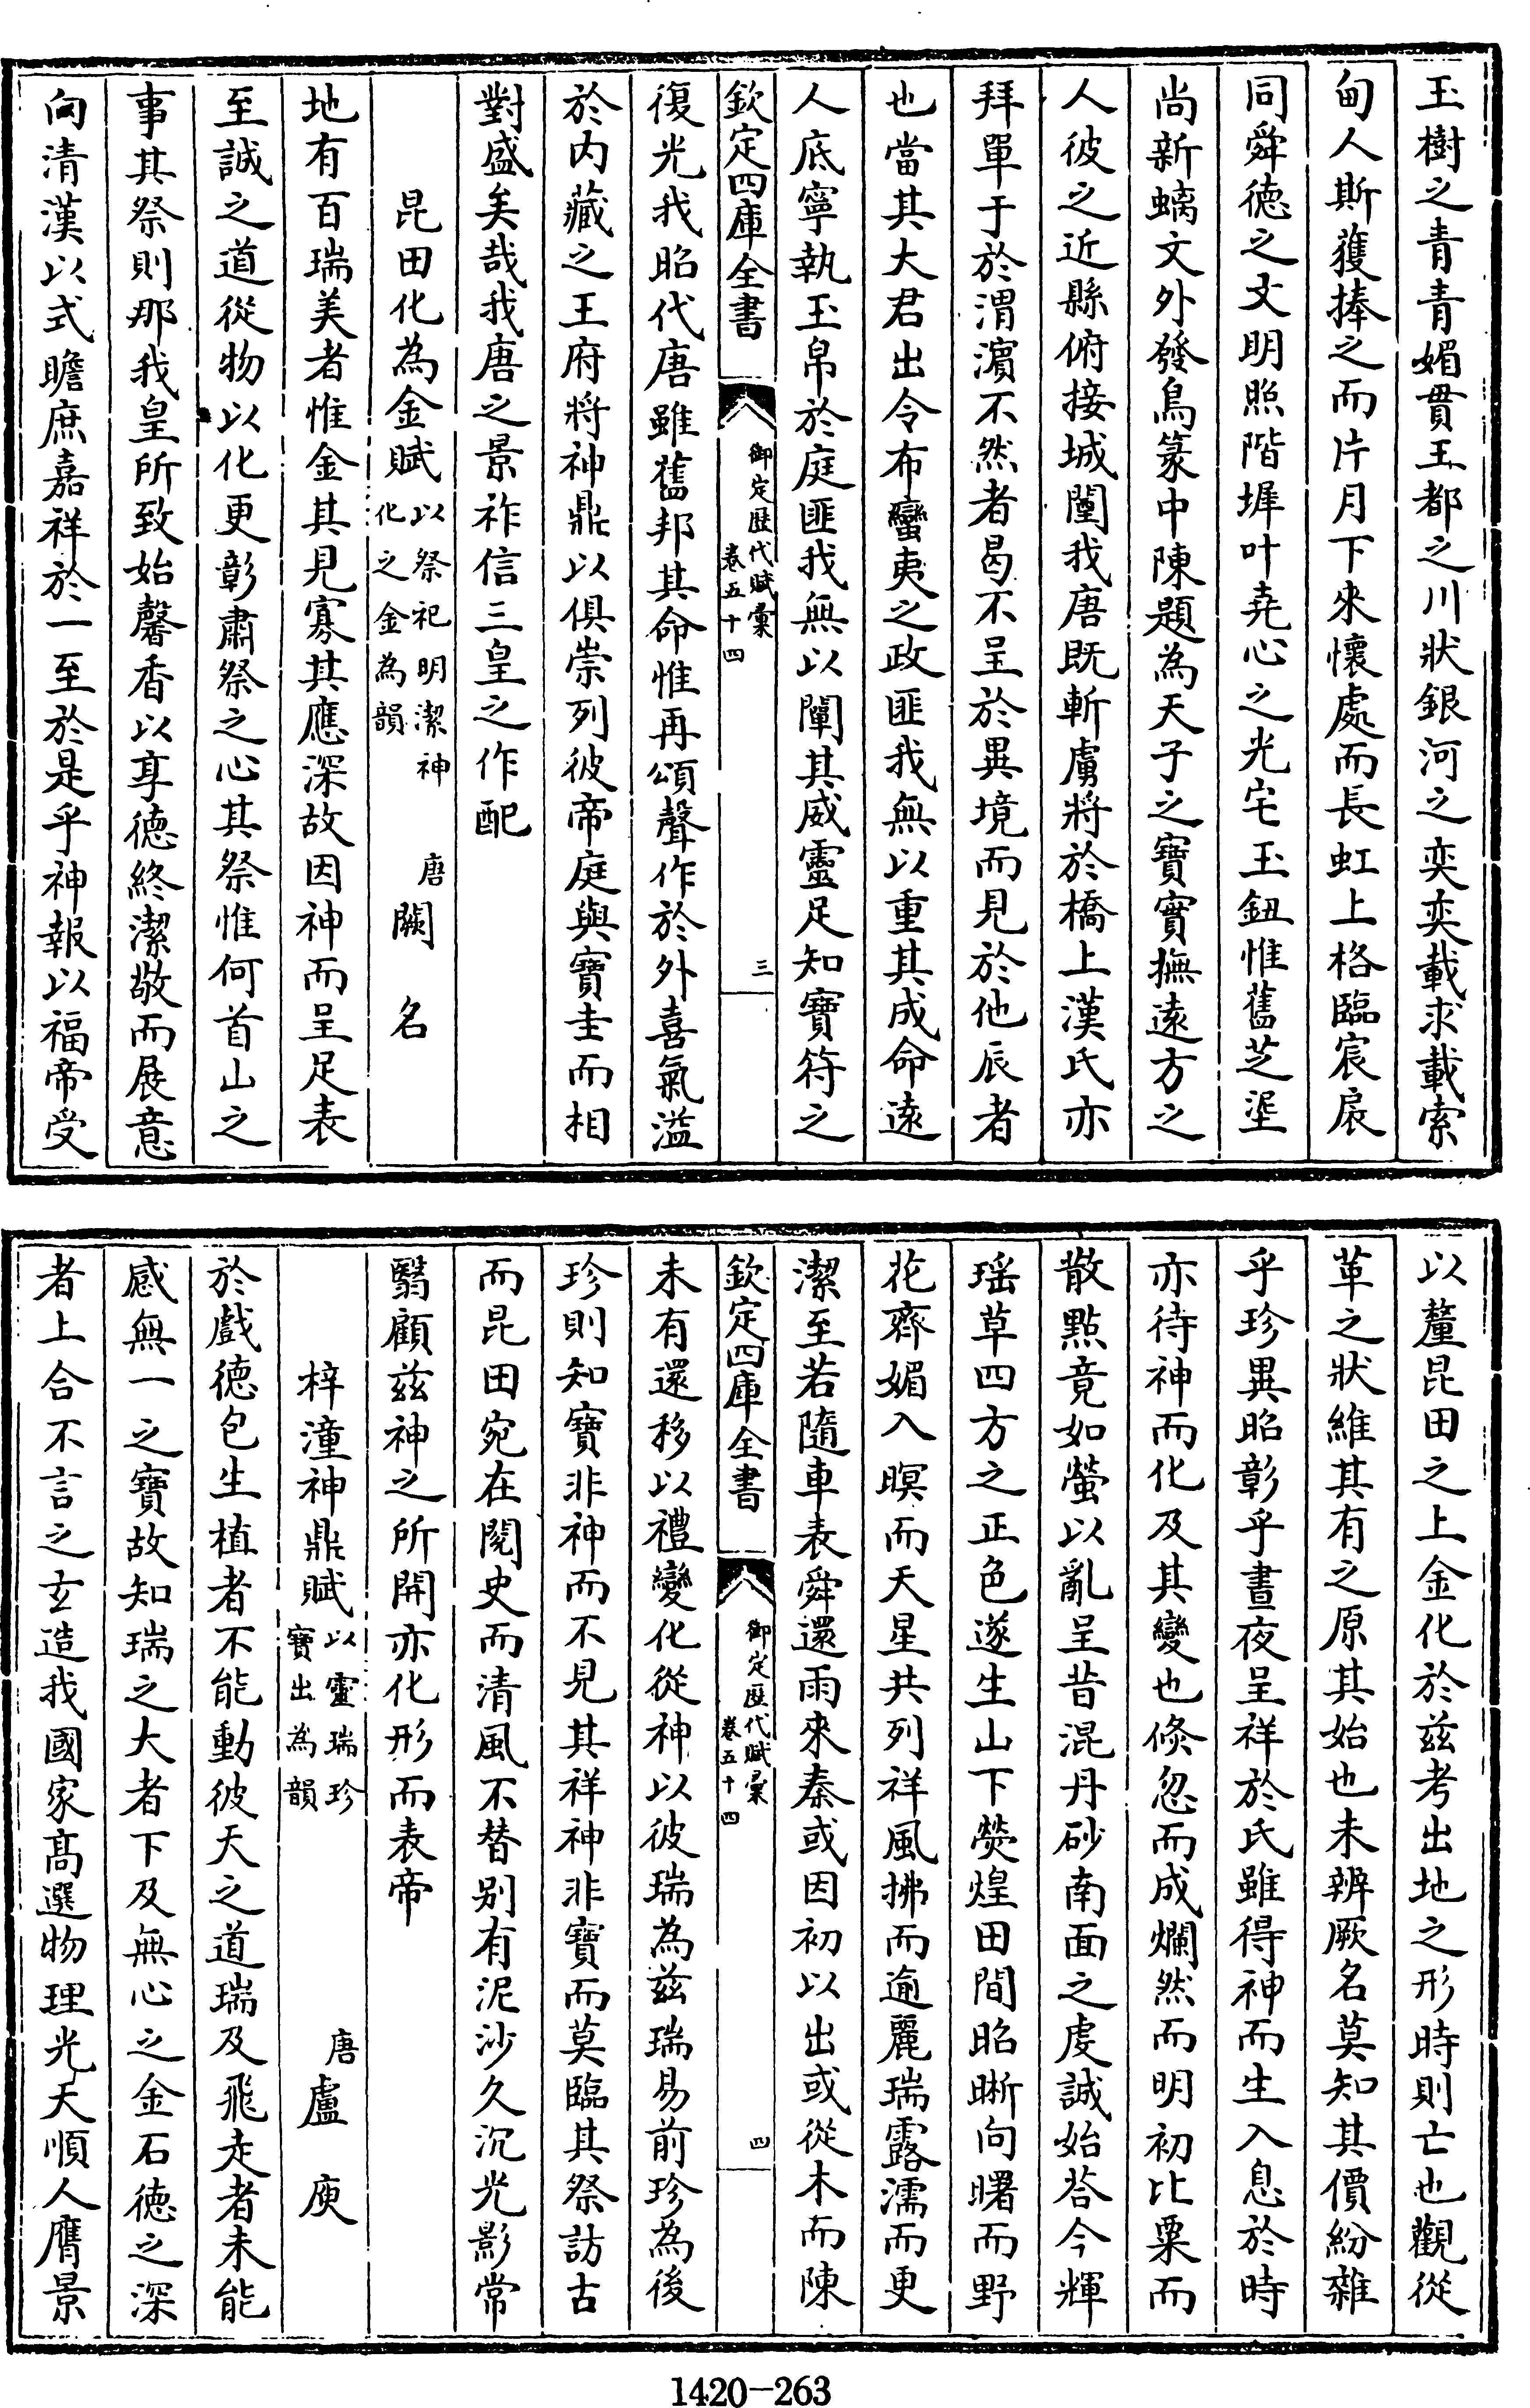 玉樹之青青媚貫玉都之川狀銀河之奕奕載求載索
甸人斯獲捧之而片月下來懷處而長虹上格臨宸扆
同舜德之文明照階墀叶堯心之光宅玉鈕惟舊芝埿
尚新螭文外發鳥篆中陳題為天子之寶實撫遠方之
人彼之近縣俯接城闉我唐既斬虜將於橋上漢氏亦
拜單于於渭濵不然者曷不呈於異境而見於他辰者
也當其大君出令布蠻夷之政匪我無以重其成命遠
人底寧執玉帛於庭匪我無以闡其威靈足知寶符之
欽定四庫全書
御定歴代賦彙
卷五十四
三
復光我昭代唐雖舊邦其命惟再頌聲作於外喜氣溢
於内藏之王府將神鼎以俱崇列彼帝庭與寶圭而相
對盛矣哉我唐之景祚信三皇之作配
昆田化為金賦以祭祀明潔神
化之金為韻
唐闕名
地有百瑞美者惟金其見寡其應深故因神而呈足表
至誠之道從物以化更彰肅祭之心其祭惟何首山之
事其祭則那我皇所致始馨香以享德終潔敬而展意
向清漢以式瞻庶嘉祥於一至於是乎神報以福帝受
以釐昆田之上金化於兹考出地之形時則亡也觀從
革之狀維其有之原其始也未辨厥名莫知其價紛雜
乎珍異昭彰乎晝夜呈祥於氏雖得神而生入息於時
亦待神而化及其變也倏忽而成爛然而明初比粟而
散點竟如螢以亂呈昔混丹砂南面之虔誠始荅今輝
瑶草四方之正色遂生山下熒煌田間昭晣向曙而野
花齊媚入暝而天星共列祥風拂而逾麗瑞露濡而更
潔至若隨車表舜還雨來秦或因初以出或從木而陳
欽定四庫全書
御定歴代賦彙
卷五十四
四
未有還移以禮變化從神以彼瑞為兹瑞易前珍為後
珍則知寶非神而不見其祥神非寶而莫臨其祭訪古
而昆田宛在閱史而清風不替别有泥沙久沉光影常
翳顧兹神之所開亦化形而表帝
梓潼神鼎賦以靈瑞珍
寶出為韻
唐盧庾
於戲德包生植者不能動彼天之道瑞及飛走者未能
感無一之寶故知瑞之大者下及無心之金石德之深
者上合不言之玄造我國家髙選物理光天順人膺景
1420-263